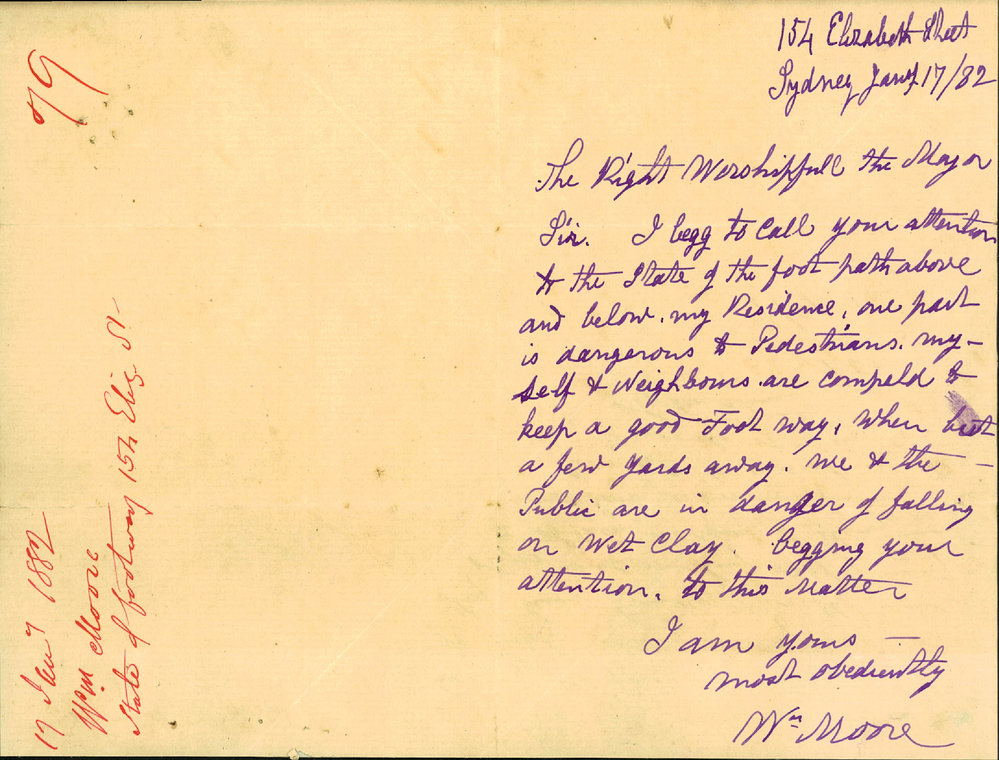 154 Elizabeth Street
Sydney Jany 17/82
The Right Worshipfull the Mayor
Sir. I begg to Call your attention
to the State of the foot path above
and below. my Residence, one part
is dangerous to Pedestrians. my-
self & Neighbours are compeld to
keep a good Foot way, when but
a few yards away. we & the -
Public are in danger of falling
on Wet Clay. begging your
attention. to this Matter
I am yours -
most obediently
Wm Moore
79
17 Jany 1882
Wm Moore
State of footway 154 Eliz St-